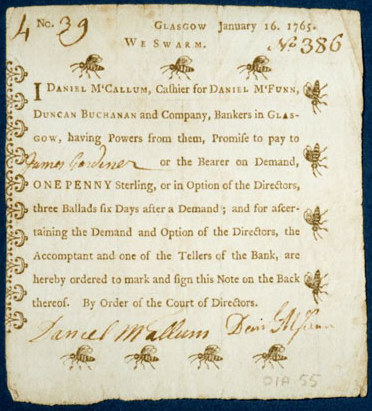 4 No. 39 Glasgow January 16. 1765.
We Swarm. No 386
I Daniel M'Callum, Cashier for Daniel M'Funn,
Duncan Buchanan and Company, Bankers in Glas-
gow, having Powers from them, Promise to pay to
James Gardner or the Bearer on Demand,
ONE PENNY Sterling, or in Option of the Directors,
three Ballads six Days after a Demand; and for ascer-
taining the Demand and Option of the Directors, the
Accomptant and one of the Tellers of the Bank, are
hereby ordered to mark and sign this Note on the Back
thereof. By Order of the Court of Directors.
Daniel McCallum
01A-55